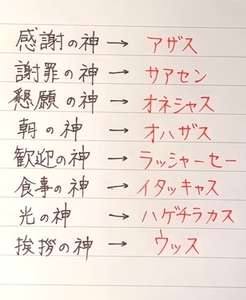 感謝の神 → アザス
謝罪の神 → サアセン
懇願の神 → オネシャス
朝の神 → オハザス
歓迎の神 → ラッシャーセー
食事の神 → イタッキャス
光の神 → ハゲチラカス
挨拶の神 → ウッス